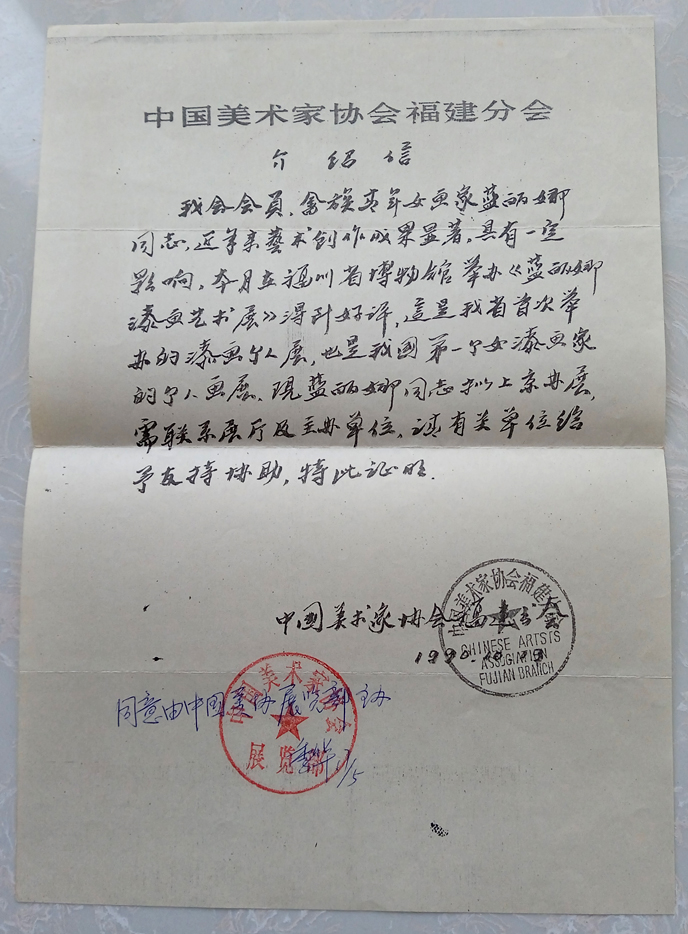 中国美术家协会福建分会
介绍信
我会会员、畲族青年女画家蓝丽娜
同志,近年来藝术创作成果显著,具有一定
影响,本月在福州省博物館举办《蓝丽娜
漆画艺术展》得到好评,這是我省首次举
办的漆画个人展,也是我國第一个女漆画家
的个人画展,现蓝丽娜同志拟上京办展,
需联系展厅及主办单位,请有关单位给
予支持协助,特此证明.
中國美术家协会福建分会
1990.10.29
中国美术家协会福建分会
CHINESE ARTSTS
ASSOCIATION
FUJIAN BRANCH
同意由中国美协展览部主办
11/15
中国美术家协会
展览部